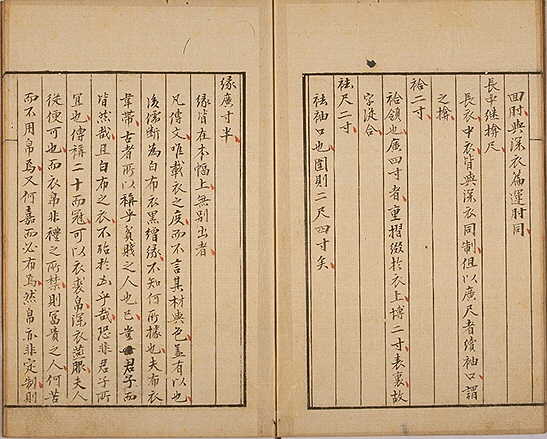 回肘與深衣篇運肘同
長中繼揜尺
長衣中衣皆與深衣同制但以廣尺者續袖口謂
之揜
袷二寸
袷領也廣四寸者重摺綴於衣上博二寸表裏故
字從合
袪尺二寸
袪袖口也圍則二尺四寸矣
緣廣寸半
緣皆在本幅上無別出者
凡傳文唯載衣之度而不言其材與色蓋有以也
後儒斷為白布衣黑繒緣不知何所據也夫布衣
韋帶古者所以稱乎貧賤之人也已豈君子而
皆然哉且白布之衣不殆於凶乎哉恐非君子所
宜也傳稱二十而冠可以衣裘帛深衣燕服夫人
從便可也而衣帛非禮之所禁則富貴之人何苦
而不用帛焉又何嘉而必布焉然帛亦非定制則